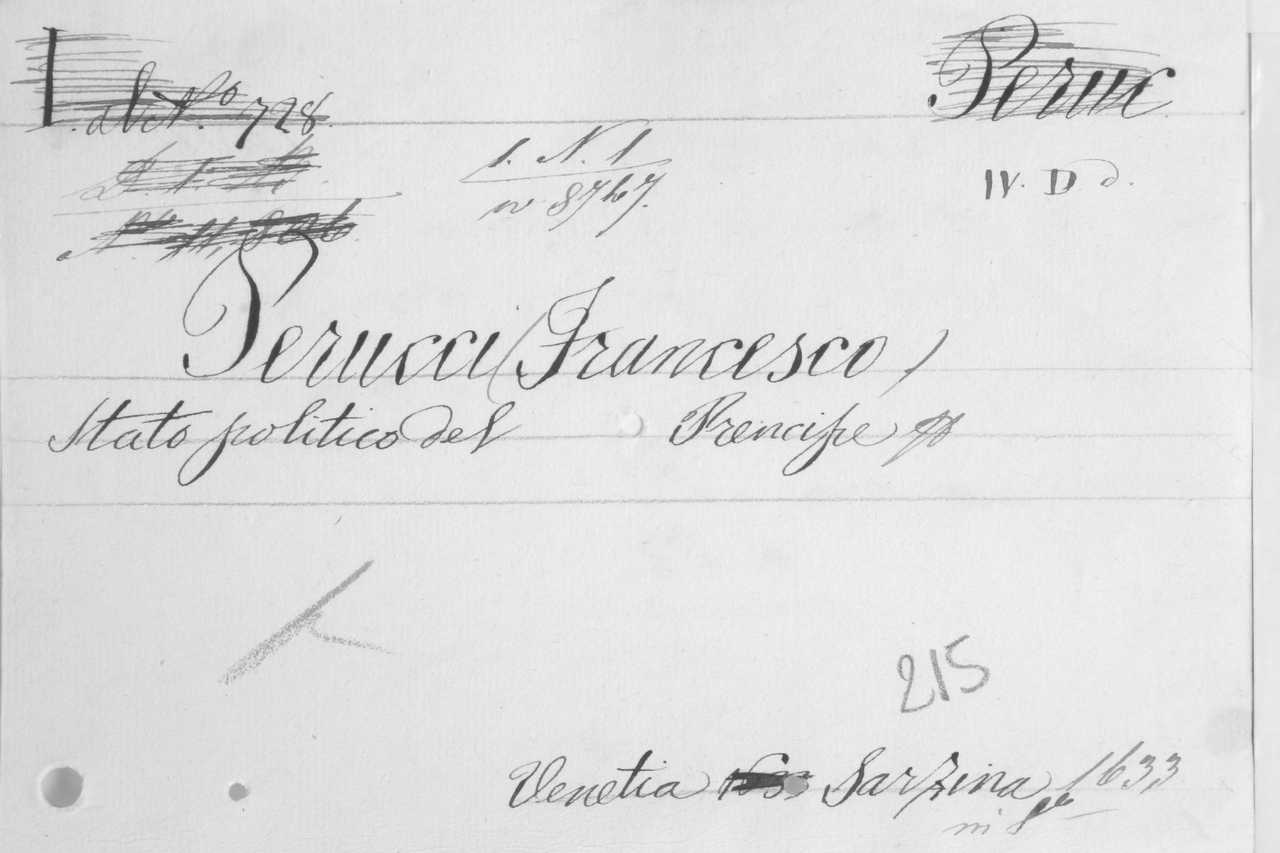 Peruc
728.
1. N. 1
IV. D d.
n 8767.
Perucci (Francesco)
Stato politico del Prencipe
215
Venetia Sarzina 1633
in 8°